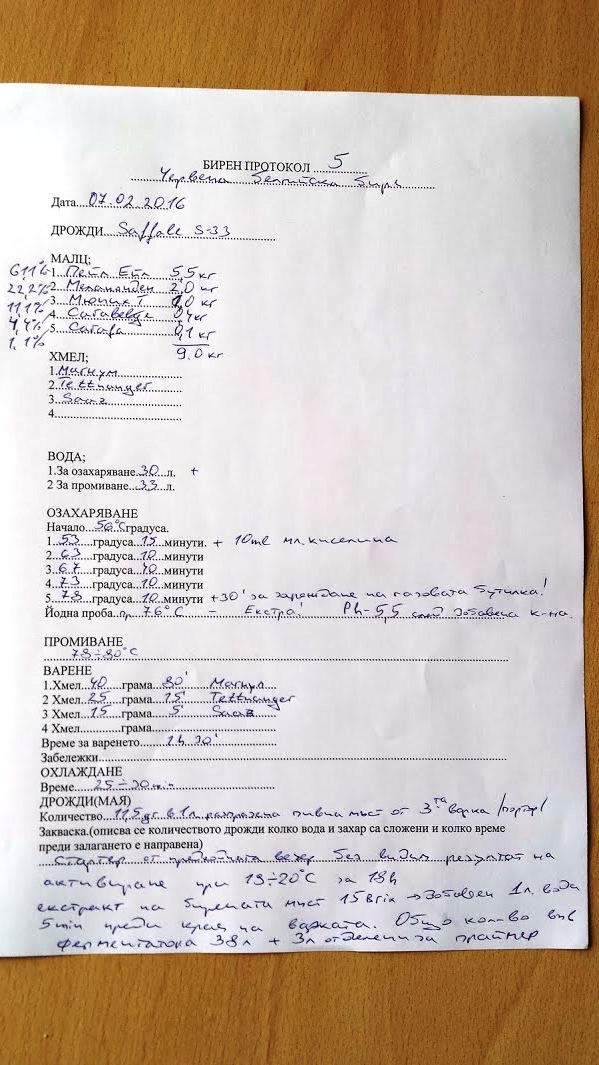 БИРЕН ПРОТОКОЛ 5
Червена белгийска бира
Дата 07.02.2016
ДРОЖДИ Saffale S-33
МАЛЦ;
61,1% 1 Пейл Ейл 5,5 кг
22,2% 2 Меланоиден 2,0 кг
11,1% 3 Мюних Т. 1,0 кг
4,4% 4 Carabelge 0,4 кг
1,1% 5 Carafa 0,1 кг
9.0 кг
ХМЕЛ;
1.Магнум
2.Tettnanger
3 Saaz
4
ВОДА;
1.За озахаряване 30 л. +
2 За промиване 33 л.
ОЗАХАРЯВАНЕ
Начало 56°C градуса.
1. 53 градуса 15 минути. + 10ml мл. киселина
2. 63 градуса 10 минути
3. 67 градуса 40 минути
4. 73 градуса 10 минути
5. 78 градуса 10 минути +30' за зареждане на газовата бутилка!
Йодна проба пр. 76°C – Екстра! Ph-5,5 след добавена к-на.
ПРОМИВАНЕ
78÷80°C
ВАРЕНЕ
1.Хмел 40 грама 80' Магнум
2 Хмел 25 грама 15' Tettnanger
3 Хмел 15 грама 5' Saaz
4 Хмел грама
Време за варенето 1h 30'
Забележки
ОХЛАЖДАНЕ
Време 25÷30 min
ДРОЖДИ(МАЯ)
Количество 11,5 gr в 1л. разредена пивна мъст от 3-та варка /портър/
Закваска.(описва се количеството дрожди колко вода и захар са сложени и колко време
преди залагането е направена)
Стартер от предходната вечер без видим резултат на
активиране при 19÷20°C за 18h
екстракт на бирената мъст 15 Brix → Добавен 1л. вода
5 min преди края на варката. Общо кол-во във
ферментатора 38л + 3л отделени за праймер